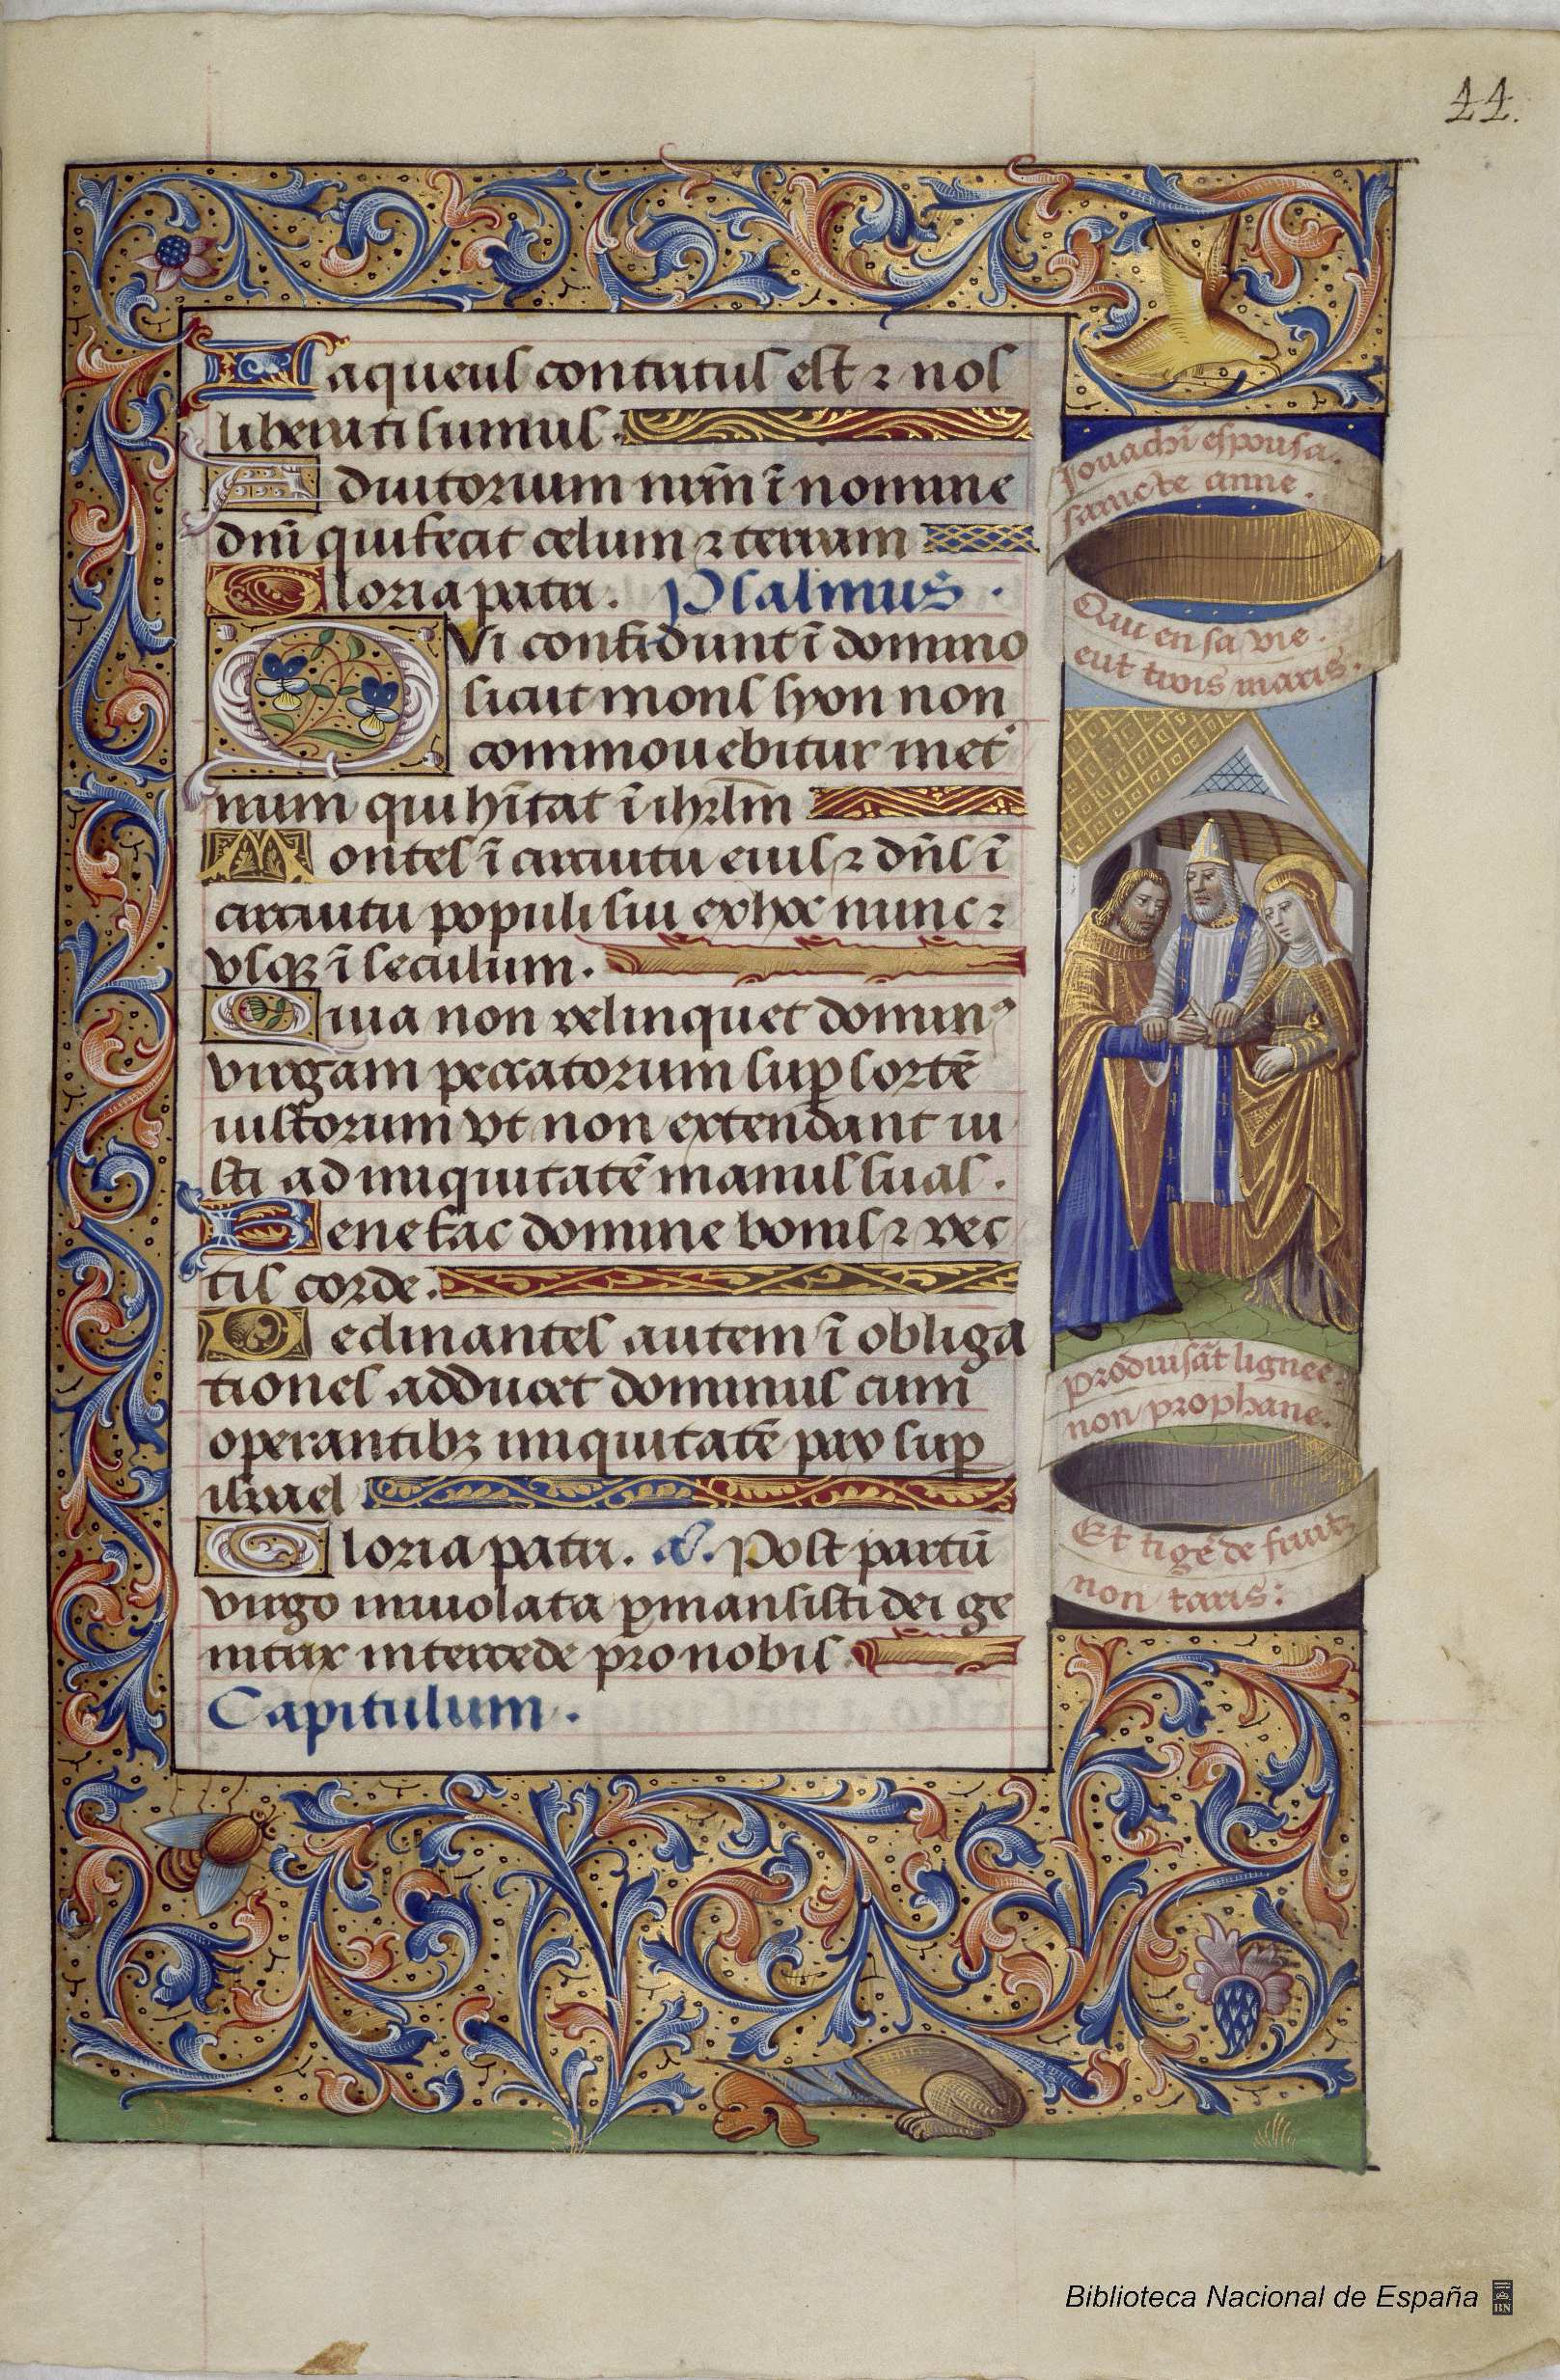 44.
Laqueus contritus est ⁊ nos
liberati sumus.
Adiutorium nr̄m ī nomine
dn̄i qui fecit celum ⁊ terram
Gloria patri. Psalmus.
QVi confidunt ī domino
sicut mons syon non
commouebitur ī eter
num qui hītat ī ihrl̄m
Montes ī circuitu eius ⁊ dn̄s ī
circuitu populi sui ex hoc nunc ⁊
vsqꝫ ī seculum.
Quia non relinquet dominꝰ
virgam peccatorum suꝑ sortē
iustorum vt non extendant iu
sti ad iniquitatē manus suas.
Benefac domine bonis ⁊ rec
tis corde.
Declinantes autem ī obliga
tiones adducet dominus cum
operantibꝫ iniquitatē pax suꝑ
israel
Gloria patri. a. Post partū
virgo inuiolata ꝑmansisti dei ge
nitrix intercede pro nobis
Capitulum.
Jouachī espousa.
saincte anne.
Qui en sa vie.
eut trois maris.
Produisāt lignee.
non prophane.
Et tige de fruitz
non taris:
Biblioteca Nacional de España
BN